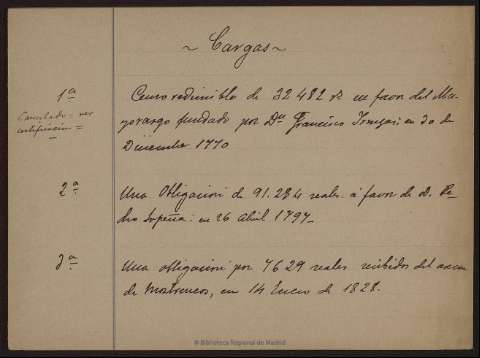 ~ Cargas ~
1ª
Cancelado = ver
certificacion =
Censo redimible de 32482 rs en favor del Ma-
yorazgo fundado por Dn. Francisco en 20 de
Diciembre 1770
2ª
Una Obligacion de 91.284 reales a favor de D. Pe-
dro Sopeña: en 26 Abril 1797_
3ª
Una obligacion por 7629 reales recibidos del
de Mostrencos, en 14 Enero de 1828.
© Biblioteca Regional de Madrid